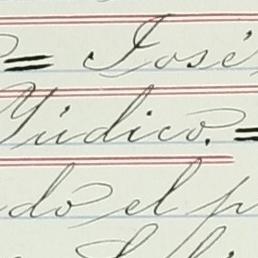 = José
Yúdico. =
do el p